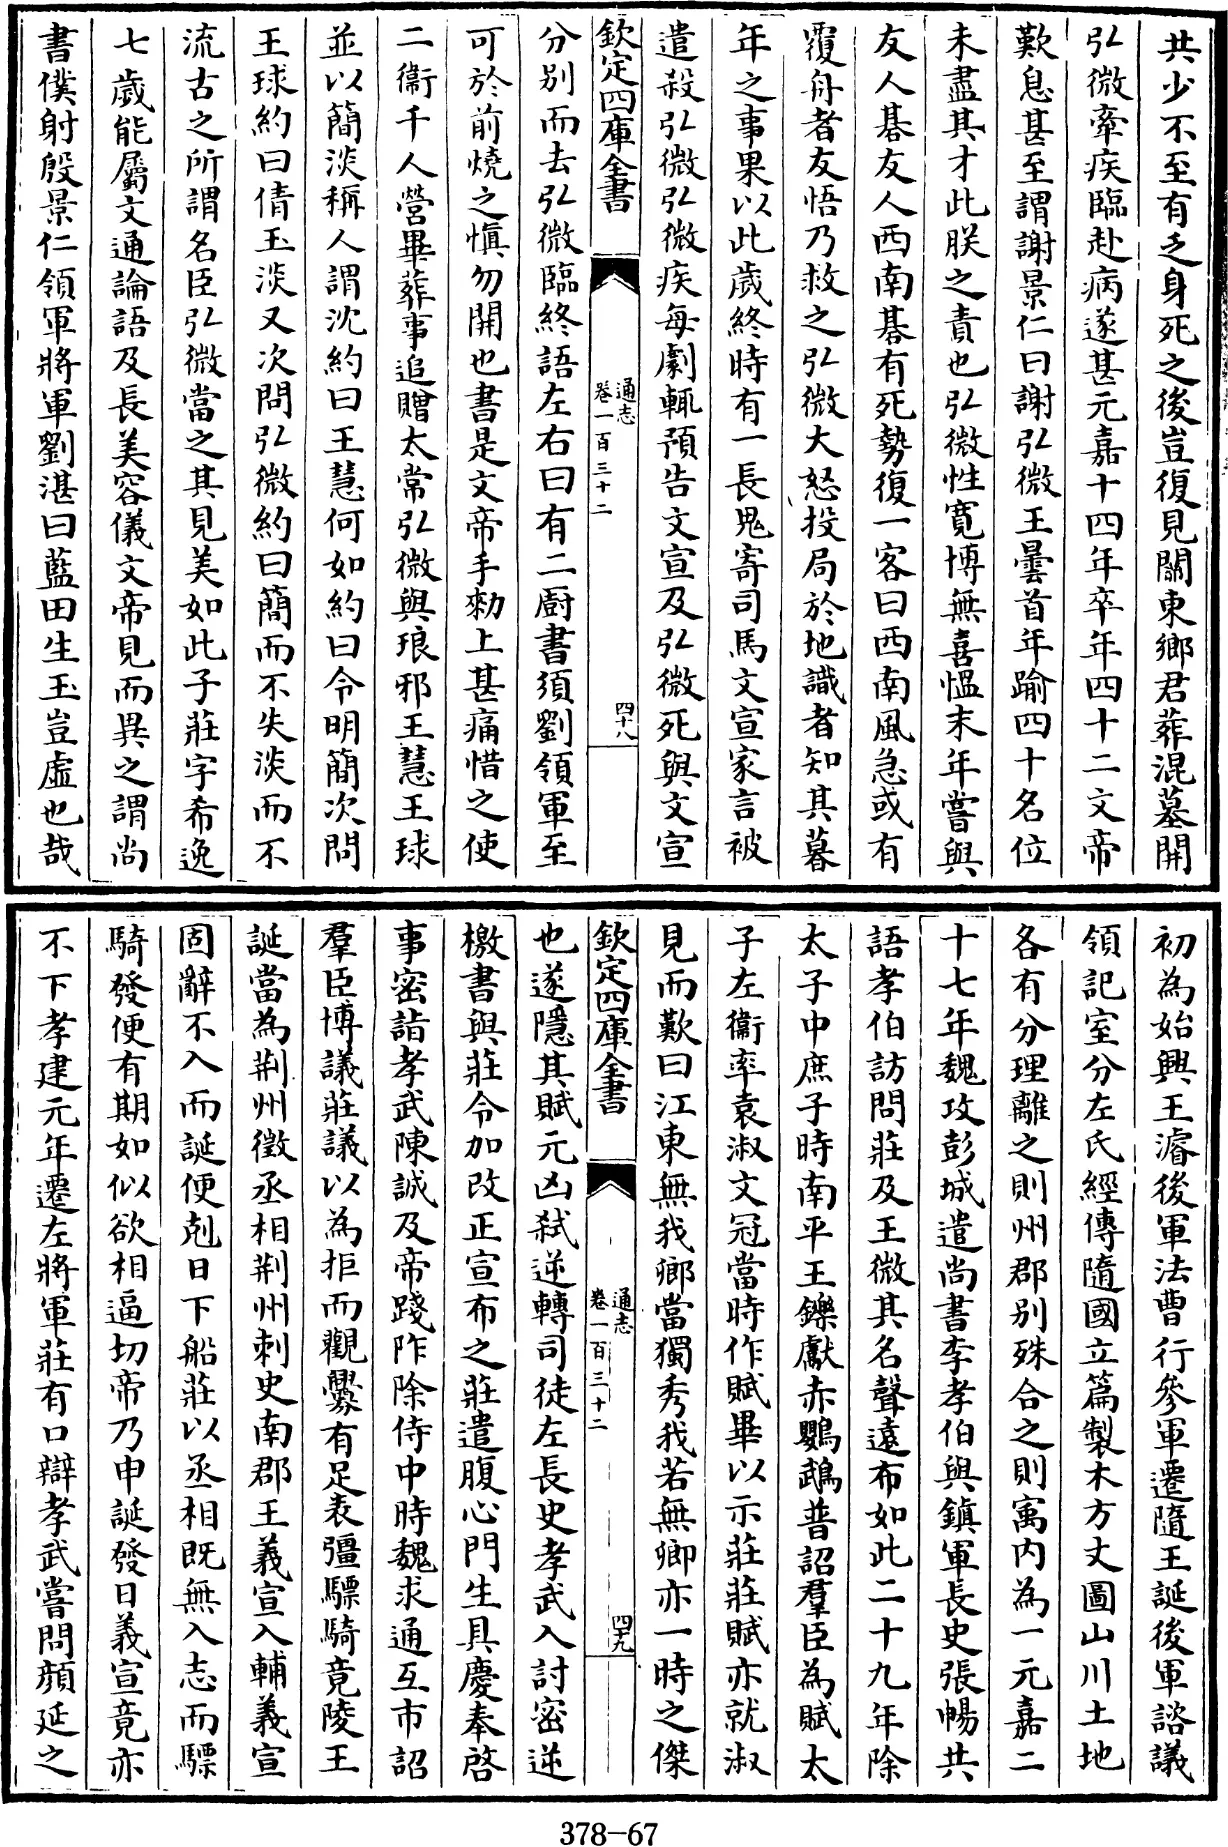 共少不至有乏身死之後豈復見關東鄉君葬混墓開
弘微牽疾臨赴病遂甚元嘉十四年卒年四十二文帝
歎息甚至謂謝景仁曰謝弘微王曇首年踰四十名位
未盡其才此朕之責也弘微性寬博無喜慍末年嘗與
友人棊友人西南棊有死勢復一客曰西南風急或有
覆舟者友悟乃救之弘微大怒投局於地識者知其暮
年之事果以此歲終時有一長鬼寄司馬文宣家言被
遣殺弘微弘微疾每劇輒預告文宣及弘微死與文宣
欽定四庫全書
通志
卷一百三十二
四十八
分別而去弘微臨終語左右曰有二厨書須劉領軍至
可於前燒之愼勿開也書是文帝手勅上甚痛惜之使
二衞千人營畢葬事追贈太常弘微與琅邪王慧王球
並以簡淡稱人謂沈約曰王慧何如約曰令明簡次問
王球約曰倩玉淡又次問弘微約曰簡而不失淡而不
流古之所謂名臣弘微當之其見美如此子莊字希逸
七歲能屬文通論語及長美容儀文帝見而異之謂尚
書僕射殷景仁領軍將軍劉湛曰藍田生玉豈虛也哉
初為始興王濬後軍法曹行參軍遷隨王誕後軍諮議
領記室分左氏經傳隨國立篇製木方丈圖山川土地
各有分理離之則州郡別殊合之則寓内為一元嘉二
十七年魏攻彭城遣尚書李孝伯與鎭軍長史張暢共
語孝伯訪問莊及王微其名聲遠布如此二十九年除
太子中庶子時南平王鑠獻赤鸚鵡普詔羣臣為賦太
子左衞率袁淑文冠當時作賦畢以示莊莊賦亦就淑
見而歎曰江東無我卿當獨秀我若無卿亦一時之傑
欽定四庫全書
通志
卷一百三十二
四十九
也遂隱其賦元凶弑逆轉司徒左長史孝武入討密逆
檄書與莊令加改正宣布之莊遣腹心門生具慶奉啓
事密詣孝武陳誠及帝踐阼除侍中時魏求通互市詔
羣臣博議莊議以為拒而觀釁有足表彊驃騎竟陵王
誕當為荆州徵丞相荆州刺史南郡王義宣入輔義宣
固辭不入而誕便剋日下船莊以丞相既無入志而驃
騎發便有期如似欲相逼切帝乃申誕發日義宣竟亦
不下孝建元年遷左將軍莊有口辯孝武嘗問顔延之
378-67